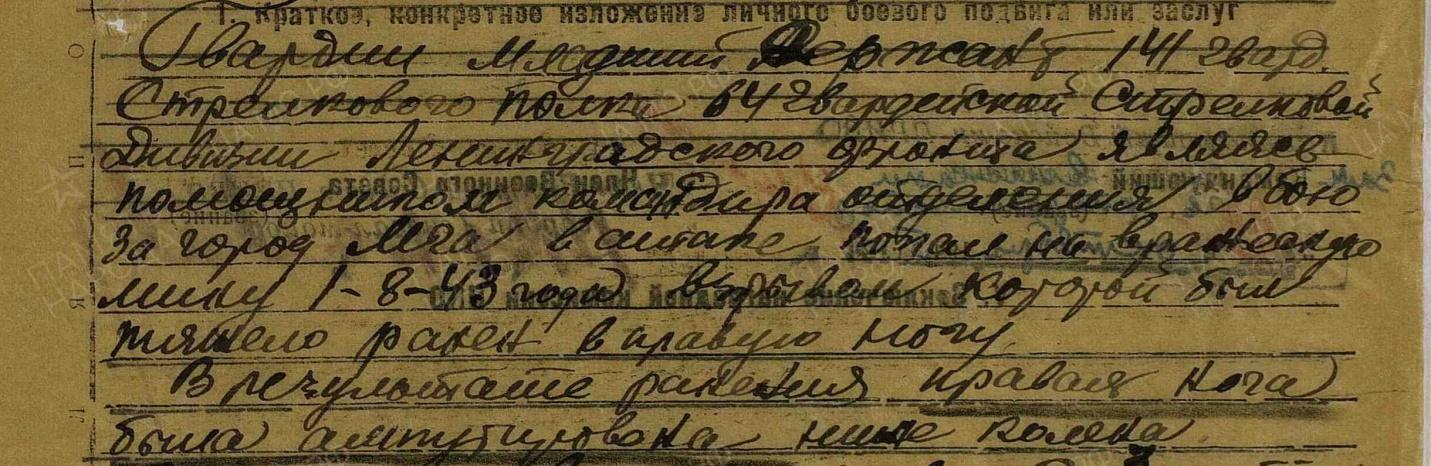 1. Краткое, конкретное изложение личного боевого подвига или заслуг
Гвардии младший Сержант 141 гвард.
Стрелкового полка 64 гвардейской Стрелковой
Дивизии Ленинградского фронта являясь
помощником командира отделения в бою
за город Мга в атаке попал на вражескую
мину 1-8-43 года взрывом которой был
тяжело ранен в правую ногу
В результате ранения правая нога
была ампутирована ниже колена